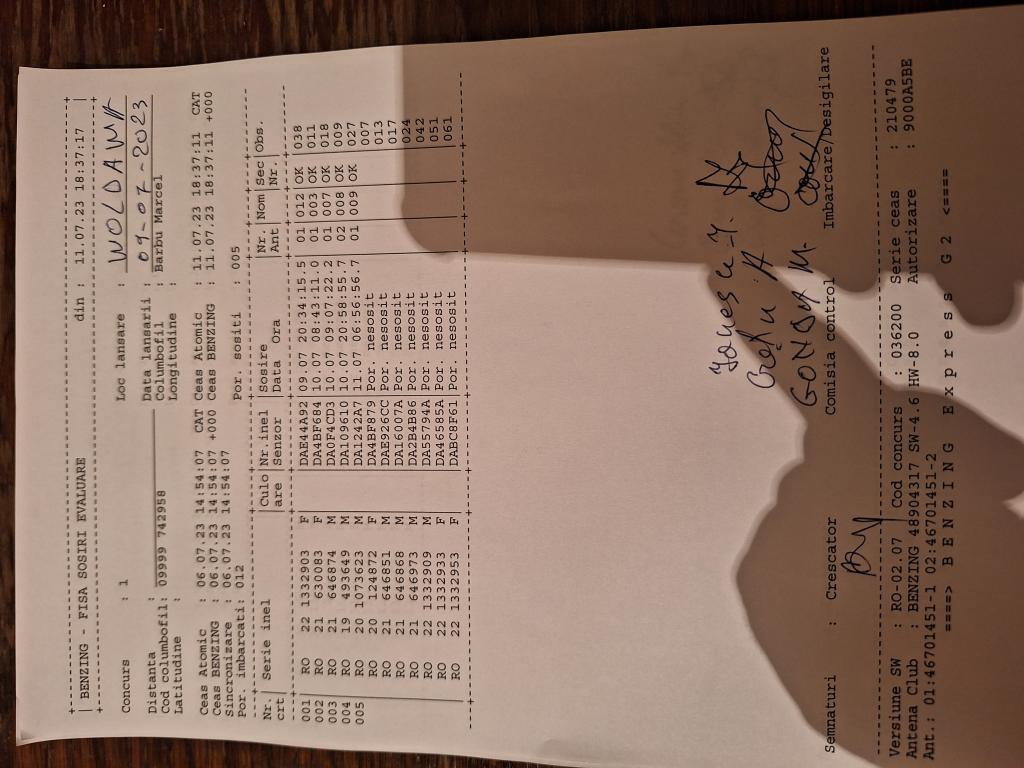 +-----------------------------------------------------------------------------+
| BENZING - FISA SOSIRI EVALUARE din : 11.07.23 18:37:17 |
+-----------------------------------------------------------------------------+
Concurs : 1 Loc lansare : WOLDAWA
Distanta : Data lansarii : 09-07-2023
Cod columbofil: 09999 742958 Columbofil : Barbu Marcel
Latitudine : Longitudine :
Ceas Atomic : 06.07.23 14:54:07 CAT Ceas Atomic : 11.07.23 18:37:11 CAT
Ceas BENZING : 06.07.23 14:54:07 +000 Ceas BENZING : 11.07.23 18:37:11 +000
Sincronizare : 06.07.23 14:54:07
Por. imbarcati: 012 Por. sositi : 005
Nr.| Serie inel |Culo|Nr.inel |Sosire Nr.| Nom|Sec|Obs.
crt| |are |Senzor |Data Ora Ant| |Nr.|
001 | RO 22 1332903 F | |DAE44A92|09.07 20:34:15.5 01|012|OK |038
002 | RO 21 630083 F | |DA4BF684|10.07 08:43:11.0 01|003|OK |011
003 | RO 21 646874 M | |DA0F4CD3|10.07 09:07:22.2 01|007|OK |018
004 | RO 19 493649 M | |DA109610|10.07 20:58:55.7 02|008|OK |009
005 | RO 20 1073623 M | |DA1242A7|11.07 06:56:56.7 01|009|OK |027
RO 20 124872 F | |DA4BF879|Por. nesosit 007
RO 21 646851 M | |DAE926CC|Por. nesosit 013
RO 21 646868 M | |DA16007A|Por. nesosit 017
RO 21 646973 M | |DA2B4B86|Por. nesosit 024
RO 22 1332909 M | |DA55794A|Por. nesosit 042
RO 22 1332933 F | |DA46585A|Por. nesosit 051
RO 22 1332953 F | |DABC8F61|Por. nesosit 061
GONDOR M.
Semnaturi : Crescator Comisia control Imbarcare/Desigilare
Versiune SW : RO-02.07 Cod concurs : 036200 Serie ceas : 210479
Antena Club : BENZING 48904317 SW-4.6 HW-8.0 Autorizare : 9000A5BE
Ant.: 01:46701451-1 02:46701451-2
====> B E N Z I N G E x p r e s s G 2 <====